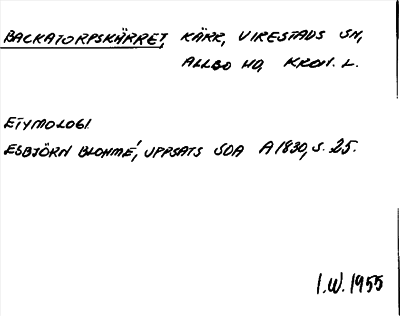 BACKATORPSKÄRRET, KÄRR, VIRESTADS SN,
ALLBO HD, KRON. L.
ETYMOLOGI
ESBJÖRN BLOHMÉ, UPPSATS SOA A 1830, S. 25.
I.W. 1955